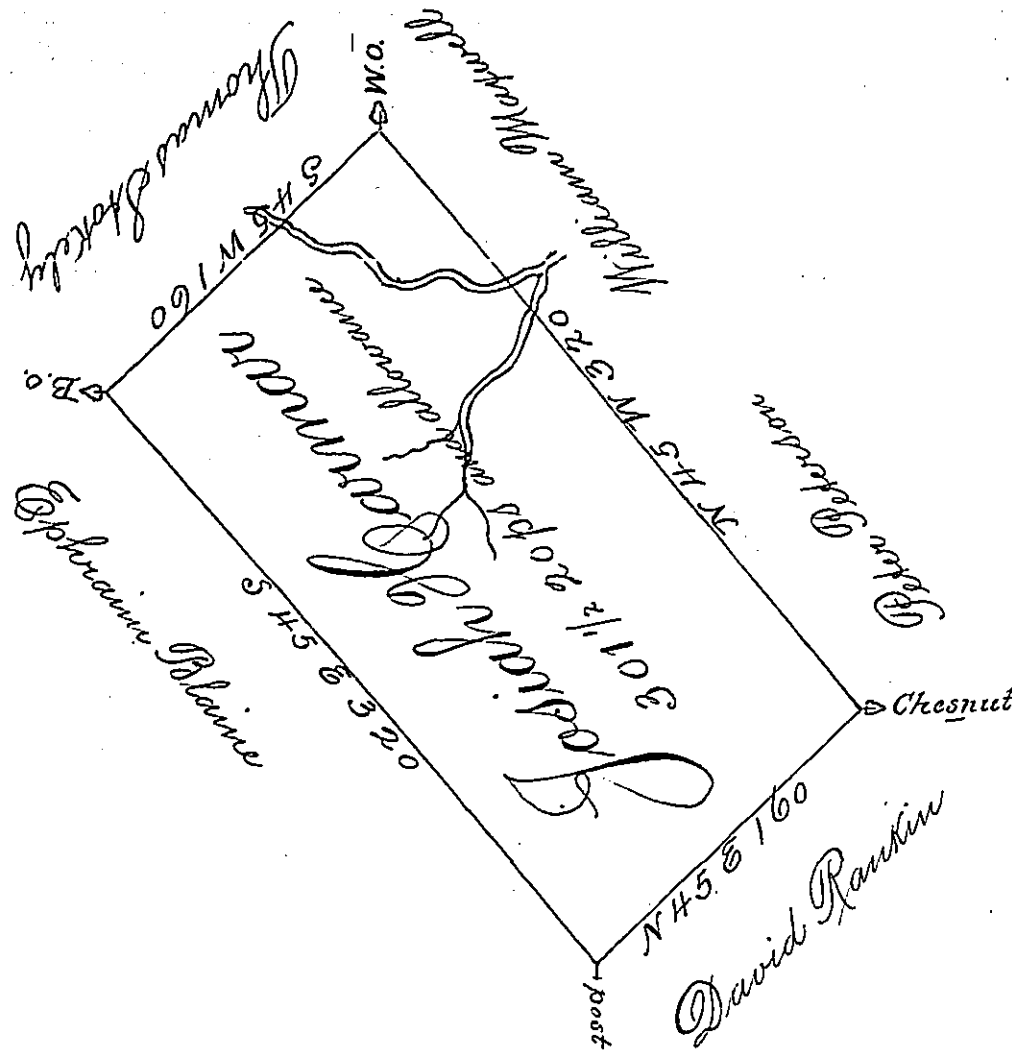 Thomas Stokely
W.O.
William Maxwell
S 45 W 160
B.O.
N 45 W 320
Peter Peterson
Josiah G Carman
301 1/2 20 ps
and allowance
Ephraim Blaine
S 45 E 320
Chesnut
N 45 E 160
David Rankin
post